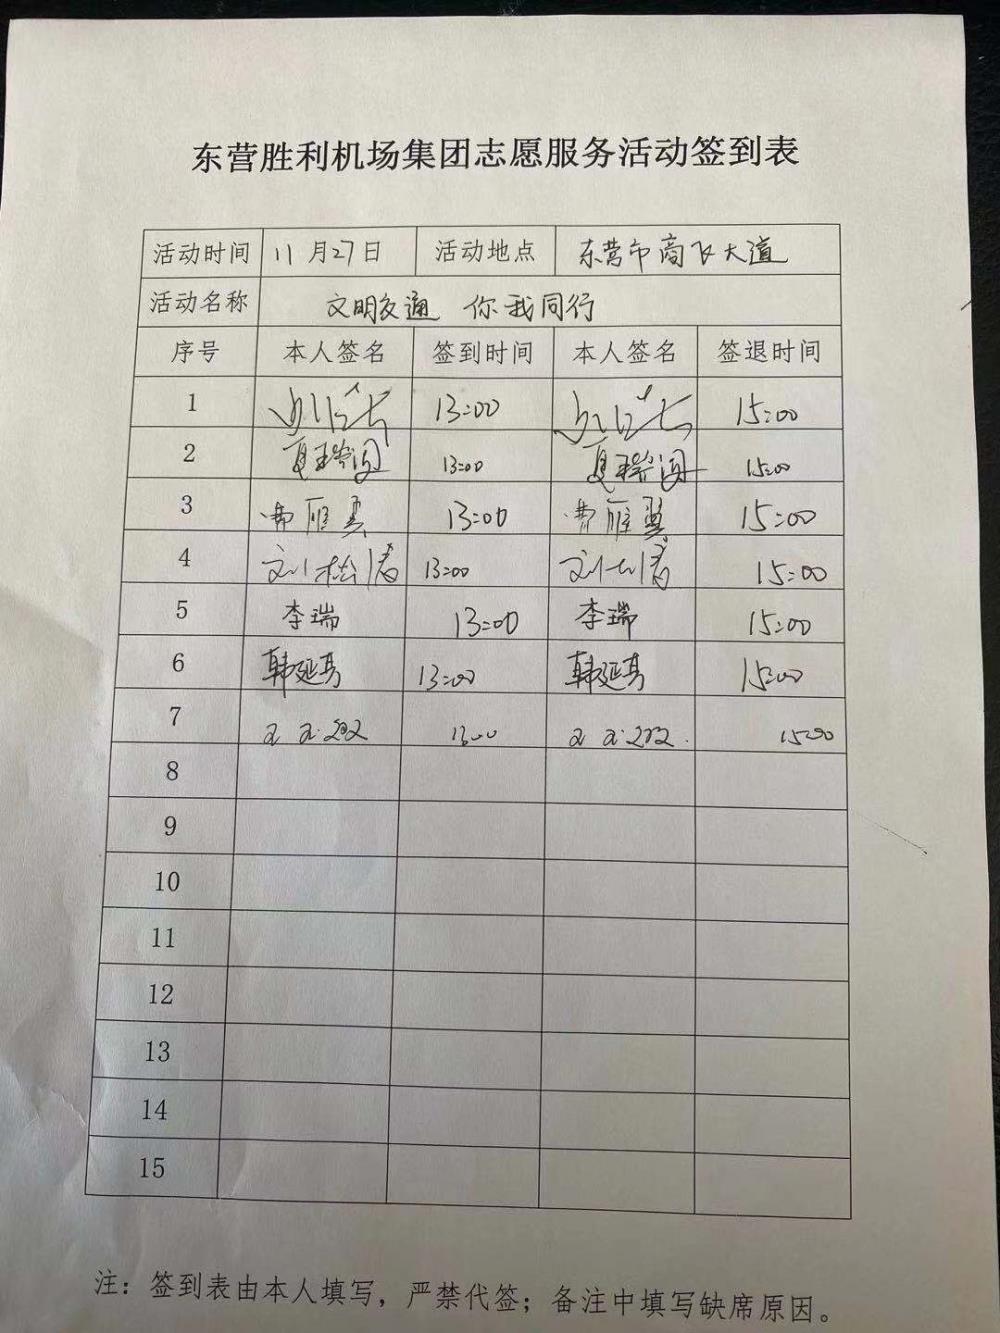 东营胜利机场集团志愿服务活动签到表
活动时间 11月27日 活动地点 东营市商飞大道
活动名称 文明交通 你我同行
序号 本人签名 签到时间 本人签名 签退时间
1 13:00 15:00
2 夏瑞阅 13:00 夏瑞阅 15:00
3 费雁翼 13:00 费雁翼 15:00
4 刘松涛 13:00 刘松涛 15:00
5 李瑞 13:00 李瑞 15:00
6 韩延秀 13:00 韩延秀 15:00
7 13:00 15:00
8
9
10
11
12
13
14
15
注：签到表由本人填写，严禁代签；备注中填写缺席原因。